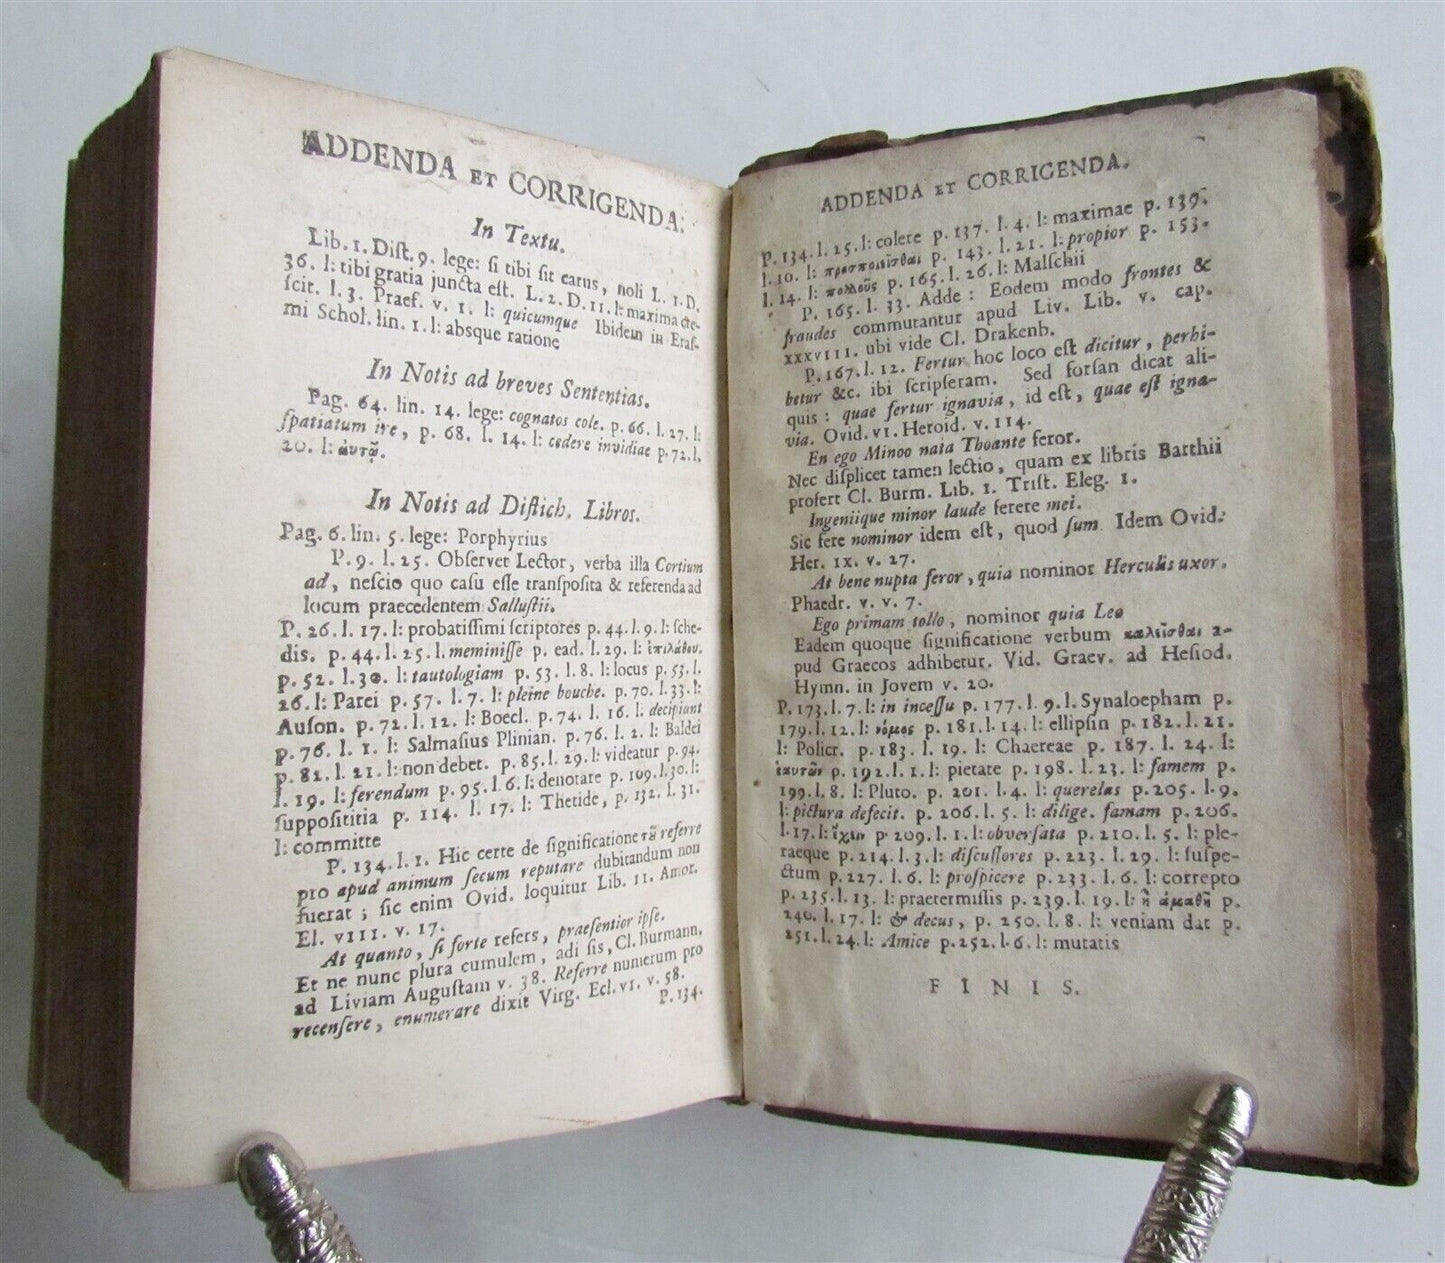 ADDENDA ET CORRIGENDA.
In Textu.
Lib. 1. Diſt. 9. lege: ſi tibi ſit carus, noli L. 1. D.
36. l: tibi gratia juncta eſt. L. 2. D. 11. l: maxima cre-
ſcit. l. 3. Praef. v. 1. l: quicumque Ibidem in Eraſ-
mi Schol. lin. 1. l: absque ratione
In Notis ad breves Sententias.
Pag. 64. lin. 14. lege: cognatos cole. p. 66. l. 27. l:
ſpatiatum ire, p. 68. l. 14. l: cedere invidiae p. 72. l.
20. l: ἁυτῷ.
In Notis ad Diſtich. Libros.
Pag. 6. lin. 5. lege: Porphyrius
P. 9. l. 25. Obſervet Lector, verba illa Cortium
ad, neſcio quo caſu eſſe tranſpoſita & referenda ad
locum praecedentem Salluſtii.
P. 26. l. 17. l: probatiſſimi ſcriptores p. 44. l. 9. l: ſche-
dis. p. 44. l. 25. l. meminiſſe p. ead. l. 29. l: ἐπιλάθου.
p. 52. l. 30. l: tautologiam p. 53. l. 8. l: locus p. 53. l.
26. l: Parei p. 57. l. 7. l: pleine bouche. p. 70. l. 33. l:
Auſon. p. 72. l. 12. l: Boecl. p. 74. l. 16. l: decipiant
p. 76. l. 1. l: Salmaſius Plinian. p. 76. l. 2. l: Baldei
p. 82. l. 21. l: non debet. p. 85. l. 29. l: videatur p. 94.
l. 19. l: ferendum p. 95. l. 6. l: denotare p. 109. l. 30. l:
ſuppoſititia p. 114. l. 17. l: Thetide, p. 132. l. 31.
l: committe
P. 134. l. 1. Hic certe de ſignificatione τȣ͂ referre
pro apud animum ſecum reputare dubitandum non
fuerat; ſic enim Ovid. loquitur Lib. 11. Amor.
El. VIII. v. 17.
At quanto, ſi forte refers, praeſentior ipſe.
Et ne nunc plura cumulem, adi ſis, Cl. Burmann.
ad Liviam Auguſtam v. 38. Referre numerum pro
recenſere, enumerare dixit Virg. Ecl. VI. v. 58.
P. 134.
ADDENDA ET CORRIGENDA.
P. 134. l. 25. l: colere p. 137. l. 4. l: maximae p. 139.
l. 10. l: προσποιεῖσθαι p. 143. l. 21. l: propior p. 153.
l. 14. l: πολλοῦς p. 165. l. 26. l: Malſchii
P. 165. l. 33. Adde: Eodem modo frontes &
fraudes commutantur apud Liv. Lib. V. cap.
XXXVIII. ubi vide Cl. Drakenb.
P. 167. l. 12. Fertur hoc loco eſt dicitur, perhi-
betur &c. ibi ſcripſeram. Sed forſan dicat ali-
quis: quae fertur ignavia, id eſt, quae eſt igna-
via. Ovid. VI. Heroid. v. 114.
En ego Minoo nata Thoante feror.
Nec diſplicet tamen lectio, quam ex libris Barthii
profert Cl. Burm. Lib. 1. Triſt. Eleg. 1.
Ingeniique minor laude ferere mei.
Sic fere nominor idem eſt, quod ſum. Idem Ovid.
Her. IX. v. 27.
At bene nupta feror, quia nominor Herculis uxor.
Phaedr. V. v. 7.
Ego primam tollo, nominor quia Leo
Eadem quoque ſignificatione verbum καλεῖσθαι a-
pud Graecos adhibetur. Vid. Graev. ad Heſiod.
Hymn. in Jovem v. 20.
P. 173. l. 7. l: in inceſſu p. 177. l. 9. l: Synaloepham p.
179. l. 12. l: νόμος p. 181. l. 14. l: ellipſin p. 182. l. 21.
l: Policr. p. 183. l. 19. l: Chaereae p. 187. l. 24. l:
ἑαυτῶν p. 192. l. 1. l: pietate p. 198. l. 23. l: famem p.
199. l. 8. l: Pluto. p. 201. l. 4. l: querelas p. 205. l. 9.
l: pictura defecit. p. 206. l. 5. l: dilige. famam p. 206.
l. 17. l: ἔχειν p. 209. l. 1. l: obverſata p. 210. l. 5. l: ple-
raeque p. 214. l. 3. l: diſcuſſores p. 223. l. 29. l: ſuſpe-
ctum p. 227. l. 6. l: proſpicere p. 233. l. 6. l: correpto
p. 235. l. 13. l: praetermiſſis p. 239. l. 19. l: ἢ ἀμαθῆ p.
240. l. 17. l: & decus, p. 250. l. 8. l: veniam dat p.
251. l. 24. l: Amice p. 252. l. 6. l: mutatis
FINIS.